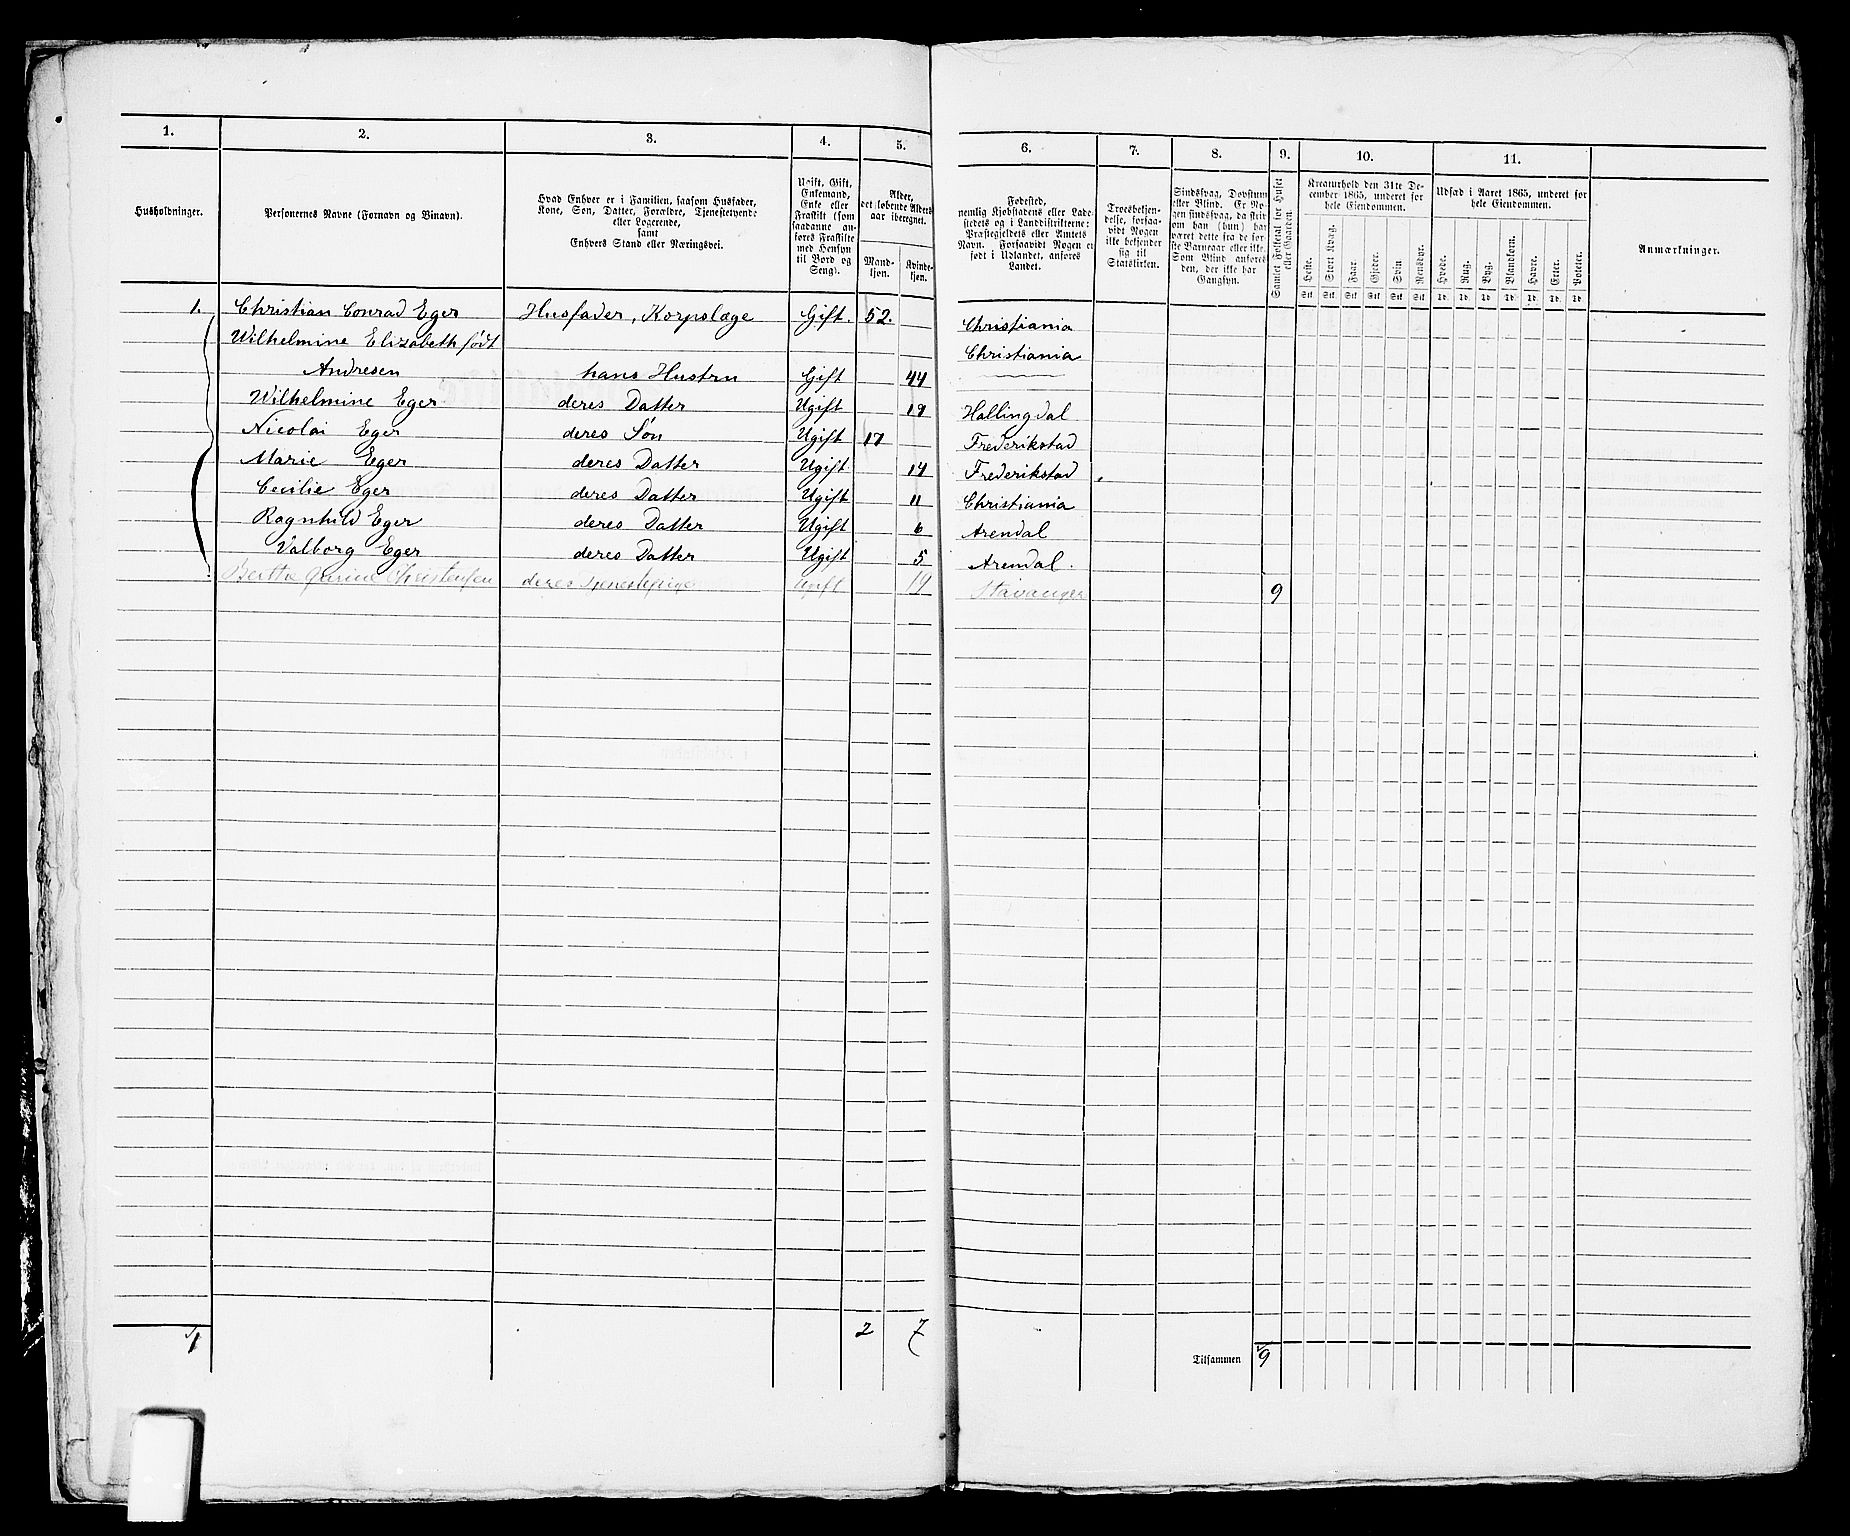 1. 2. 3. 4. 5. 6. 7. 8. 9. 10. 11.
Husholdninger.
Personernes Navne (Fornavn og Binavn).
Hvad Enhver er i Familien, saasom Husfader,
Kone, Søn, Datter, Forældre, Tjenestetyende
eller Logerende,
samt
Enhvers Stand eller Næringsvei.
Ugift, Gift,
Enkemand,
Enke eller
Fraskilt (som
saadanne an-
føres Fraskilte
med Hensyn
til Bord og
Seng).
Alder,
det løbende Alders-
aar iberegnet.
Mand-
kjøn.
Kvinde-
kjøn.
Fødested,
nemlig Kjøbstadens eller Lade-
stedets og i Landdistrikterne:
Præstegjeldets eller Amtets
Navn. Forsaavidt Nogen er
født i Udlandet, anføres
Landet.
Troesbekjen-
delse, forsaa-
vidt Nogen
ikke bekjender
sig til
Statskirken.
Sindssvag, Døvstum
eller Blind. Er No-
gen sindssvag, da skriv
om han (hun) har
været dette fra de før-
ste Barneaar eller ikke.
Som Blind anføres
den, der ikke har
Gangsyn.
Samlet Folketal for Huset
eller Gaarden.
Kreaturhold den 31te De-
cember 1865, underet for
hele Eiendommen.
Heste. Stort Kvæg. Faar. Gjeder. Svin Rensdyr.
Stk. Stk. Stk. Stk. Stk Stk.
Udsæd i Aaret 1865, underet for
hele Eiendommen.
Hvede. Rug. Byg. Blandkorn. Havre. Erter. Poteter.
Td. Td. Td. Td. Td. Td. Td
Anmærkninger.
1. Christian Conrad Eger Husfader, Korpslæge Gift. 52. Christiania
Wilhelmine Elizabeth født Christiania
Andresen hans Hustru Gift 44
Wilhelmine Eger deres Datter Ugift 19 Hallingdal
Nicolai Eger deres Søn Ugift 17 Frederikstad
Marie Eger deres Datter Ugift 14 Frederikstad
Cecilie Eger deres Datter Ugift 11 Christiania
Ragnhild Eger deres Datter Ugift 6 Arendal
Valborg Eger deres Datter Ugift 5 Arendal.
Bertha Christensen deres Tjenestepige Ugift 19 Stavanger 9
1 2 7 Tilsammen 9